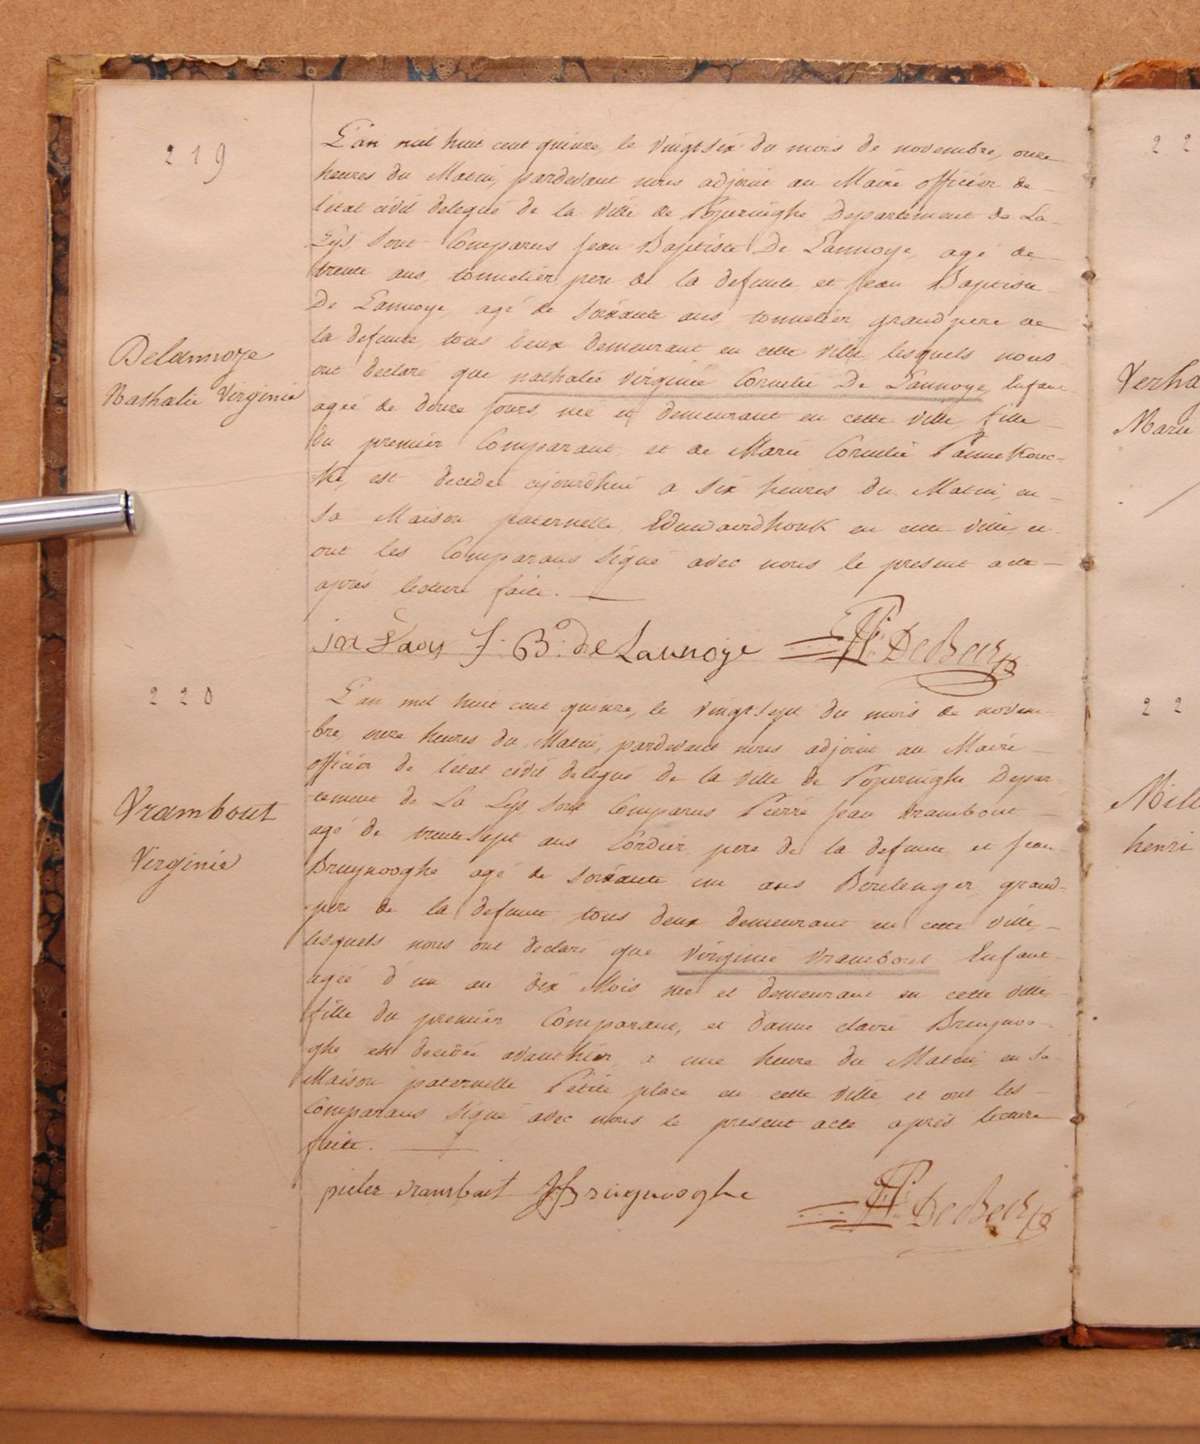 219
L'an mil huit cent quinze, le vingt six du mois de novembre, onze
heures du Matin, pardevant nous adjoint au Maire officier de
l'état civil delegué de la ville de Poperinghe Departement de La
Lys Sont Comparus Jean Baptiste De Lannoye, agé de
trente ans, tonnelier pere de la defunte et Jean Baptiste
De Lannoye, agé de soixante ans tonnelier grand pere de
la defunte tous deux demeurant en cette ville lesquels nous
ont declaré que nathalie virginie Cornelie De Lannoye, Enfant
Delannoye
Nathalie Virginie
agée de douze jours, née et demeurant en cette ville fille
du premier Comparant, et de Marie Cornelie Pannekouc-
ke, est decedée aujourdhui a six heures du Matin, en
sa Maison paternelle, en cette ville, et
ont les Comparans signé avec nous le present acte
après lecture faite.
J. B. de Lannoye DeBeir
220
L'an mil huit cent quinze, le vingt sept du mois de novem-
bre, onze heures du Matin, pardevant nous adjoint au Maire
officier de l'état civil delegué de la ville de Poperinghe Depar-
tement de La Lys Sont Comparus Pierre Jean Vrambout
agé de trente sept ans Cordier pere de la defunte et Jean
Bruynooghe agé de soixante un ans Boulenger, grand-
pere de la defunte tous deux demeurant en cette ville
Vrambout
Virginie
lesquels nous ont declaré que Virginie Vrambout Enfant
agée d'un an dix Mois née et demeurant en cette ville
fille du premier Comparant, et d'anne claire Bruynoo-
ghe est decedée avant hier, a une heure du Matin, en sa
Maison paternelle Petite place en cette ville et ont les
Comparans signé avec nous le present acte après lecture
faite.
pieter vrambout JBruynooghe DeBeir
22
Verha
Marie
22
Mill
henri